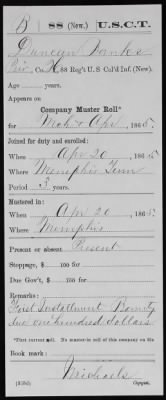 B | 88 (New.) | U.S.C.T.
Duncan Banks
Pvt, Co. H, 88 Reg't U. S. Col'd Inf. (New).
Age years.
Appears on
Company Muster Roll*
for Mch & Apr, 1865.
Joined for duty and enrolled:
When Apr 20, 1865.
Where Memphis Tenn
Period 3 years.
Mustered in:
When Apr 20, 1865.
Where Memphis
Present or absent Present
Stoppage, $ 100 for
Due Gov't, $ 100 for
Remarks:
First Installment Bounty
due one hundred dollars
*First current roll. No muster-in roll of this company on file
Book mark:
Michaels
(858d) Copyist.